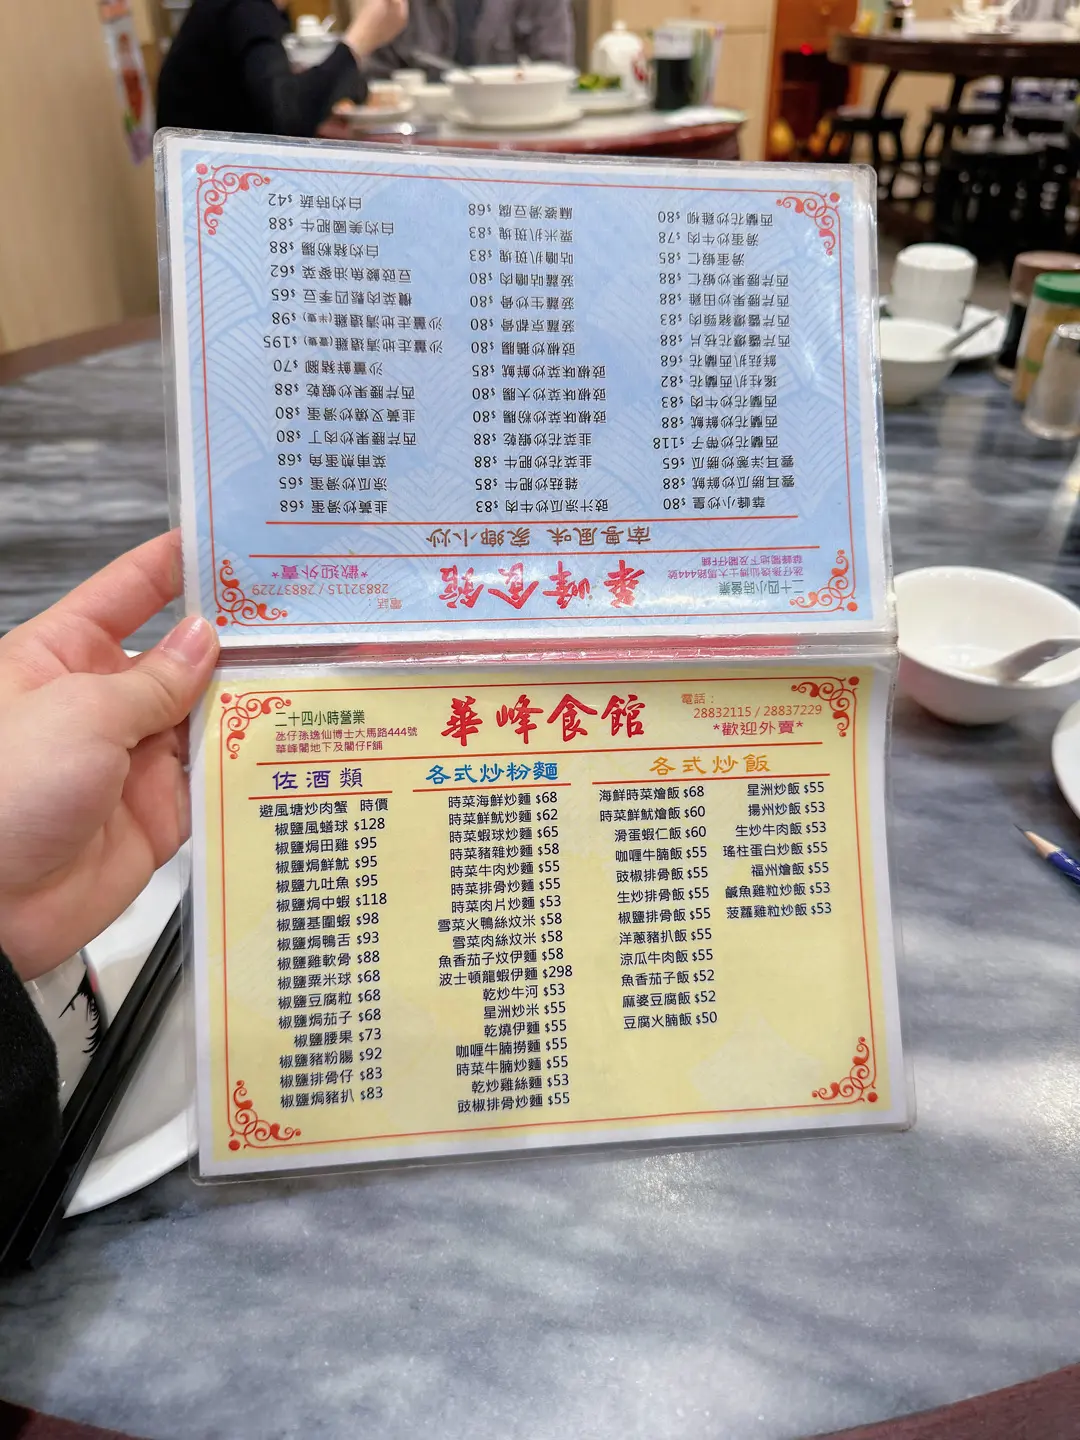 華峰食館
二十四小時營業
氹仔孫逸仙博士大馬路444號
華峰閣地下及閣仔F舖
電話：
28832115 / 28837229
*歡迎外賣*
南粵風味 家鄉小炒
華峰小炒皇 $80
雲耳勝瓜炒鮮魷 $88
雲耳洋蔥炒勝瓜 $65
西蘭花炒帶子 $118
西蘭花炒鮮魷 $88
西蘭花炒牛肉 $83
瑤柱扒西蘭花 $82
鮮菇扒西蘭花 $68
西芹醬爆花枝片 $88
西芹醬爆豬頸肉 $83
西芹腰果炒田雞 $88
西芹腰果炒蝦仁 $88
滑蛋蝦仁 $85
滑蛋炒牛肉 $78
西蘭花炒雞柳 $80
豉汁涼瓜炒牛肉 $83
雜菇炒肥牛 $85
韭菜花炒肥牛 $88
韭菜花炒蝦乾 $88
豉椒味菜炒粉腸 $80
豉椒味菜炒大腸 $80
豉椒味菜炒鮮魷 $85
豉椒炒鵝腸 $80
菠蘿京都骨 $80
菠蘿生炒骨 $80
菠蘿咕嚕肉 $80
咕嚕扒斑塊 $83
粟米扒斑塊 $83
麻婆滑豆腐 $68
韭黃炒滑蛋 $68
涼瓜炒滑蛋 $65
菜甫煎蛋角 $68
西芹腰果炒肉丁 $80
韭黃叉燒炒滑蛋 $80
西芹腰果炒蝦乾 $88
沙薑鮮豬腳 $70
沙薑走地清遠雞(壹隻) $195
沙薑走地清遠雞(半隻) $98
欖菜肉鬆四季豆 $65
豆豉鯪魚油麥菜 $62
白灼豬粉腸 $88
白灼美國肥牛 $88
白灼時蔬 $42
二十四小時營業
氹仔孫逸仙博士大馬路444號
華峰閣地下及閣仔F舖
華峰食館
電話：
28832115 / 28837229
*歡迎外賣*
佐酒類
避風塘炒肉蟹 時價
椒鹽風蟮球 $128
椒鹽焗田雞 $95
椒鹽焗鮮魷 $95
椒鹽九吐魚 $95
椒鹽焗中蝦 $118
椒鹽基圍蝦 $98
椒鹽焗鴨舌 $93
椒鹽雞軟骨 $88
椒鹽粟米球 $68
椒鹽豆腐粒 $68
椒鹽焗茄子 $68
椒鹽腰果 $73
椒鹽豬粉腸 $92
椒鹽排骨仔 $83
椒鹽焗豬扒 $83
各式炒粉麵
時菜海鮮炒麵 $68
時菜鮮魷炒麵 $62
時菜蝦球炒麵 $65
時菜豬雜炒麵 $58
時菜牛肉炒麵 $55
時菜排骨炒麵 $55
時菜肉片炒麵 $53
雪菜火鴨絲炆米 $58
雪菜肉絲炆米 $58
魚香茄子炆伊麵 $58
波士頓龍蝦伊麵 $298
乾炒牛河 $53
星洲炒米 $55
乾燒伊麵 $55
咖喱牛腩撈麵 $55
時菜牛腩炒麵 $55
乾炒雞絲麵 $53
豉椒排骨炒麵 $55
各式炒飯
海鮮時菜燴飯 $68
時菜鮮魷燴飯 $60
滑蛋蝦仁飯 $60
咖喱牛腩飯 $55
豉椒排骨飯 $55
生炒排骨飯 $55
椒鹽排骨飯 $55
洋蔥豬扒飯 $55
涼瓜牛肉飯 $55
魚香茄子飯 $52
麻婆豆腐飯 $52
豆腐火腩飯 $50
星洲炒飯 $55
揚州炒飯 $53
生炒牛肉飯 $53
瑤柱蛋白炒飯 $55
福州燴飯 $55
鹹魚雞粒炒飯 $53
菠蘿雞粒炒飯 $53